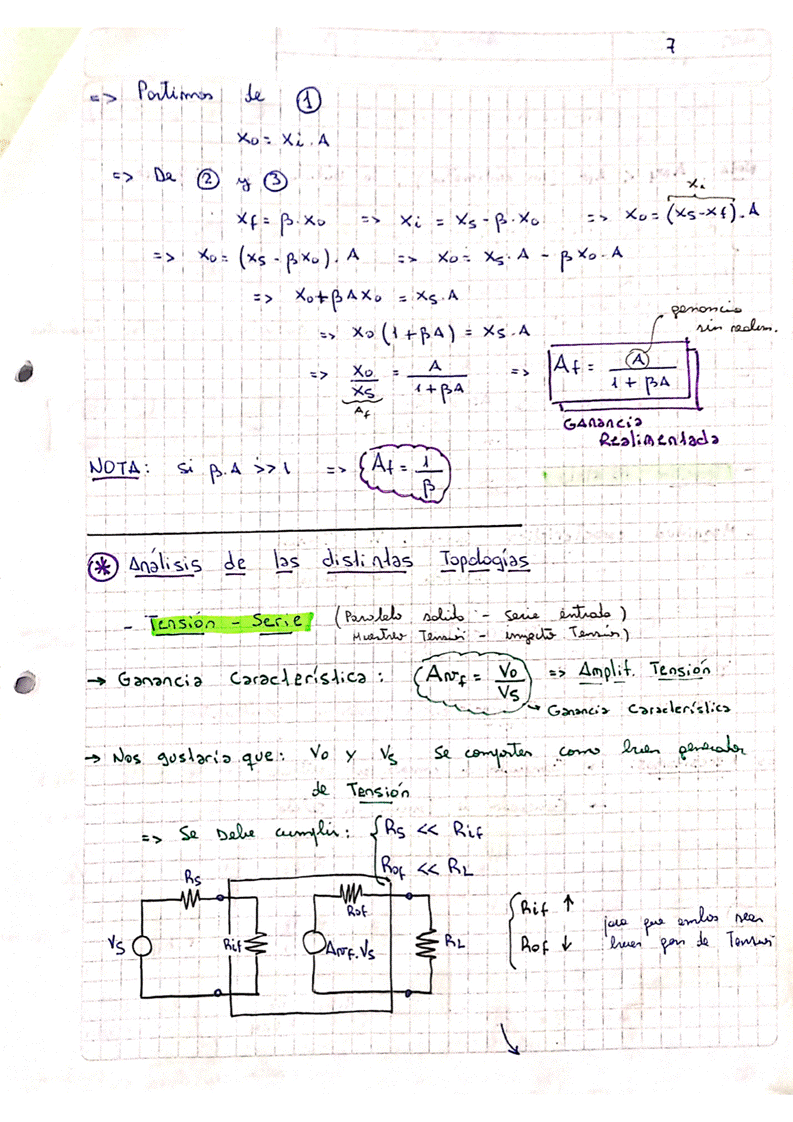 7
=> Partimos de ①
Xo = Xi . A
=> De ② y ③
Xi
Xf = β . Xo => Xi = Xs - β . Xo => Xo = (Xs - Xf) . A
=> Xo = (Xs - βXo) . A => Xo = Xs . A - βXo . A
=> Xo + βAXo = Xs . A
ganancia
sin realim.
=> Xo (1 + βA) = Xs . A
=> Xo/Xs = A/(1 + βA) => Af = A/(1 + βA)
Af
Ganancia
Realimentada
NOTA: Si β.A >> 1 => Af = 1/β
(*) Análisis de las distintas Topologías
- Tensión - Serie (Paralelo salida - serie entrada)
Muestreo Tensión - inyecto Tensión)
→ Ganancia Característica: (Avf = Vo/Vs) => Amplif. Tensión
→ Ganancia Característica
→ Nos gustaría que: Vo y Vs se comporten como buen generador
de Tensión
=> Se Debe cumplir: { Rs << Rif
Rof << RL
Rs
Rof
Vs
Rif
Avf . Vs
RL
{ Rif ↑
Rof ↓
para que ambos sean
buen gen de Tensión